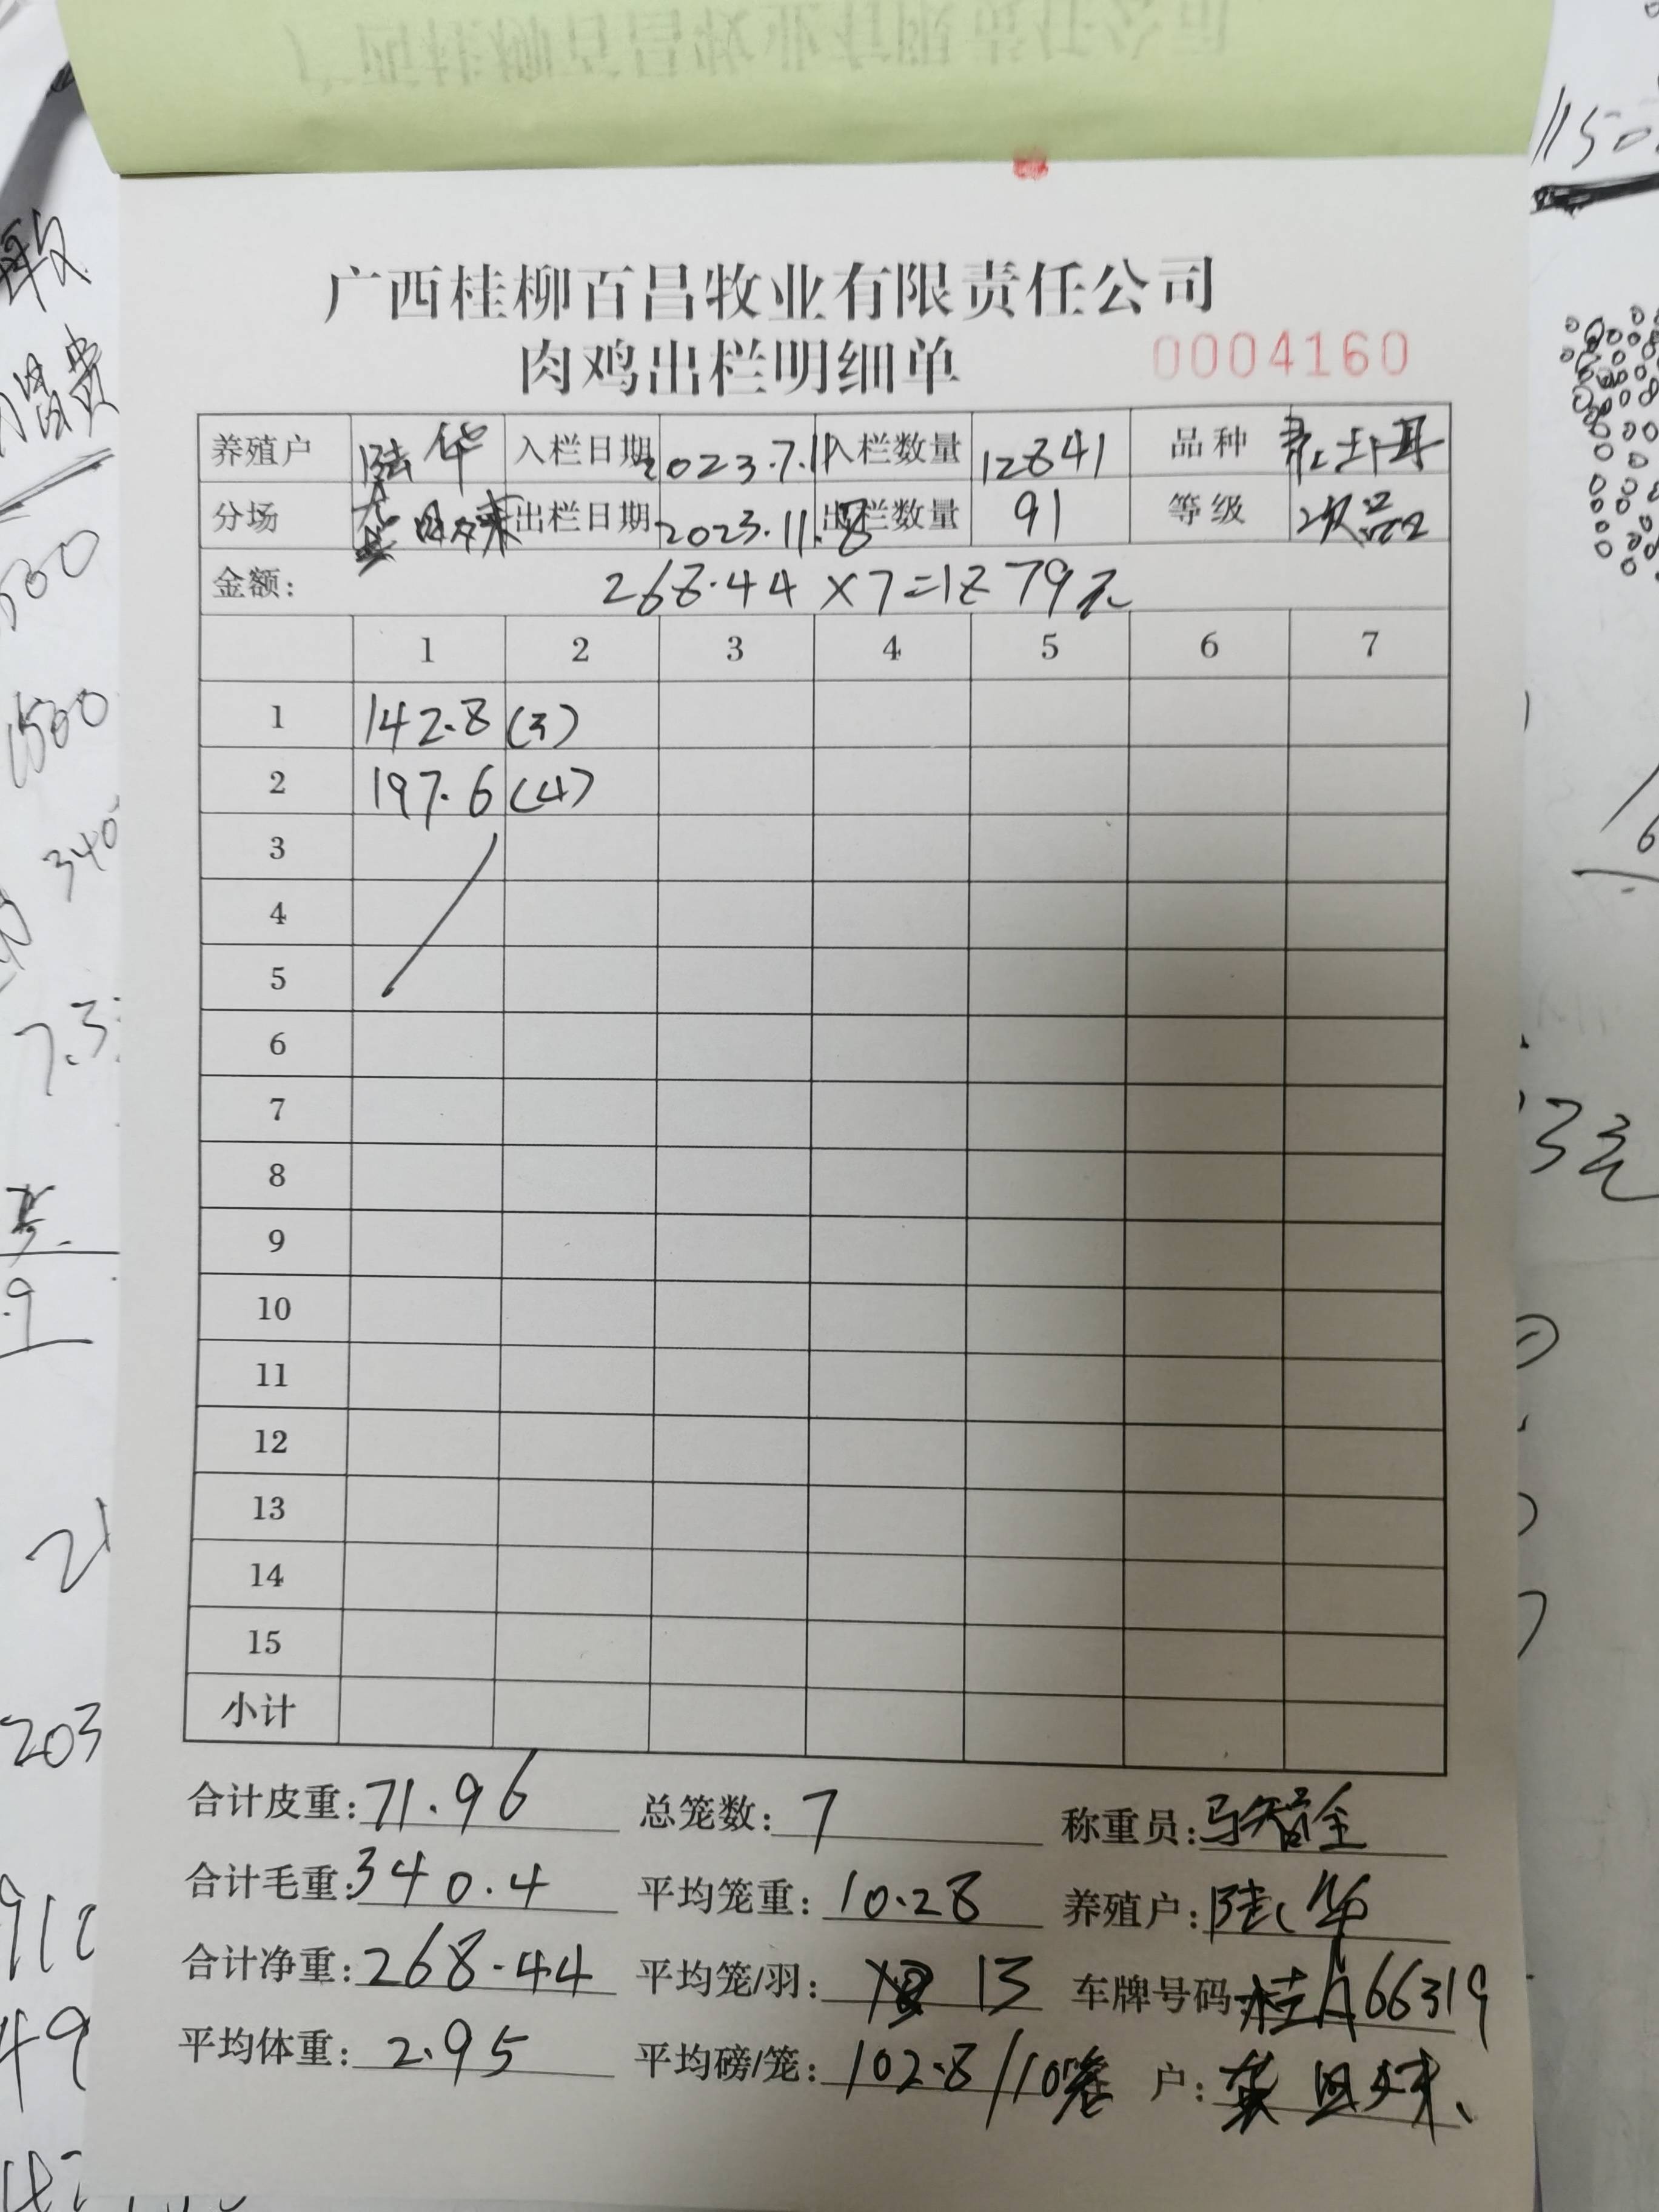 广西桂柳百昌牧业有限责任公司
肉鸡出栏明细单 0004160
养殖户 陆华 入栏日期 2023.7.11 入栏数量 12841 品种
分场 出栏日期 2023.11.8 出栏数量 91 等级 次品
金额: 268.44×7=1879元
1 2 3 4 5 6 7
1 142.8 (3)
2 197.6 (4)
3
4
5
6
7
8
9
10
11
12
13
14
15
小计
合计皮重: 71.96 总笼数: 7 称重员:
合计毛重: 340.4 平均笼重: 10.28 养殖户: 陆华
合计净重: 268.44 平均笼/羽: 13 车牌号码: 桂A66319
平均体重: 2.95 平均磅/笼: 102.8/10笼 户: